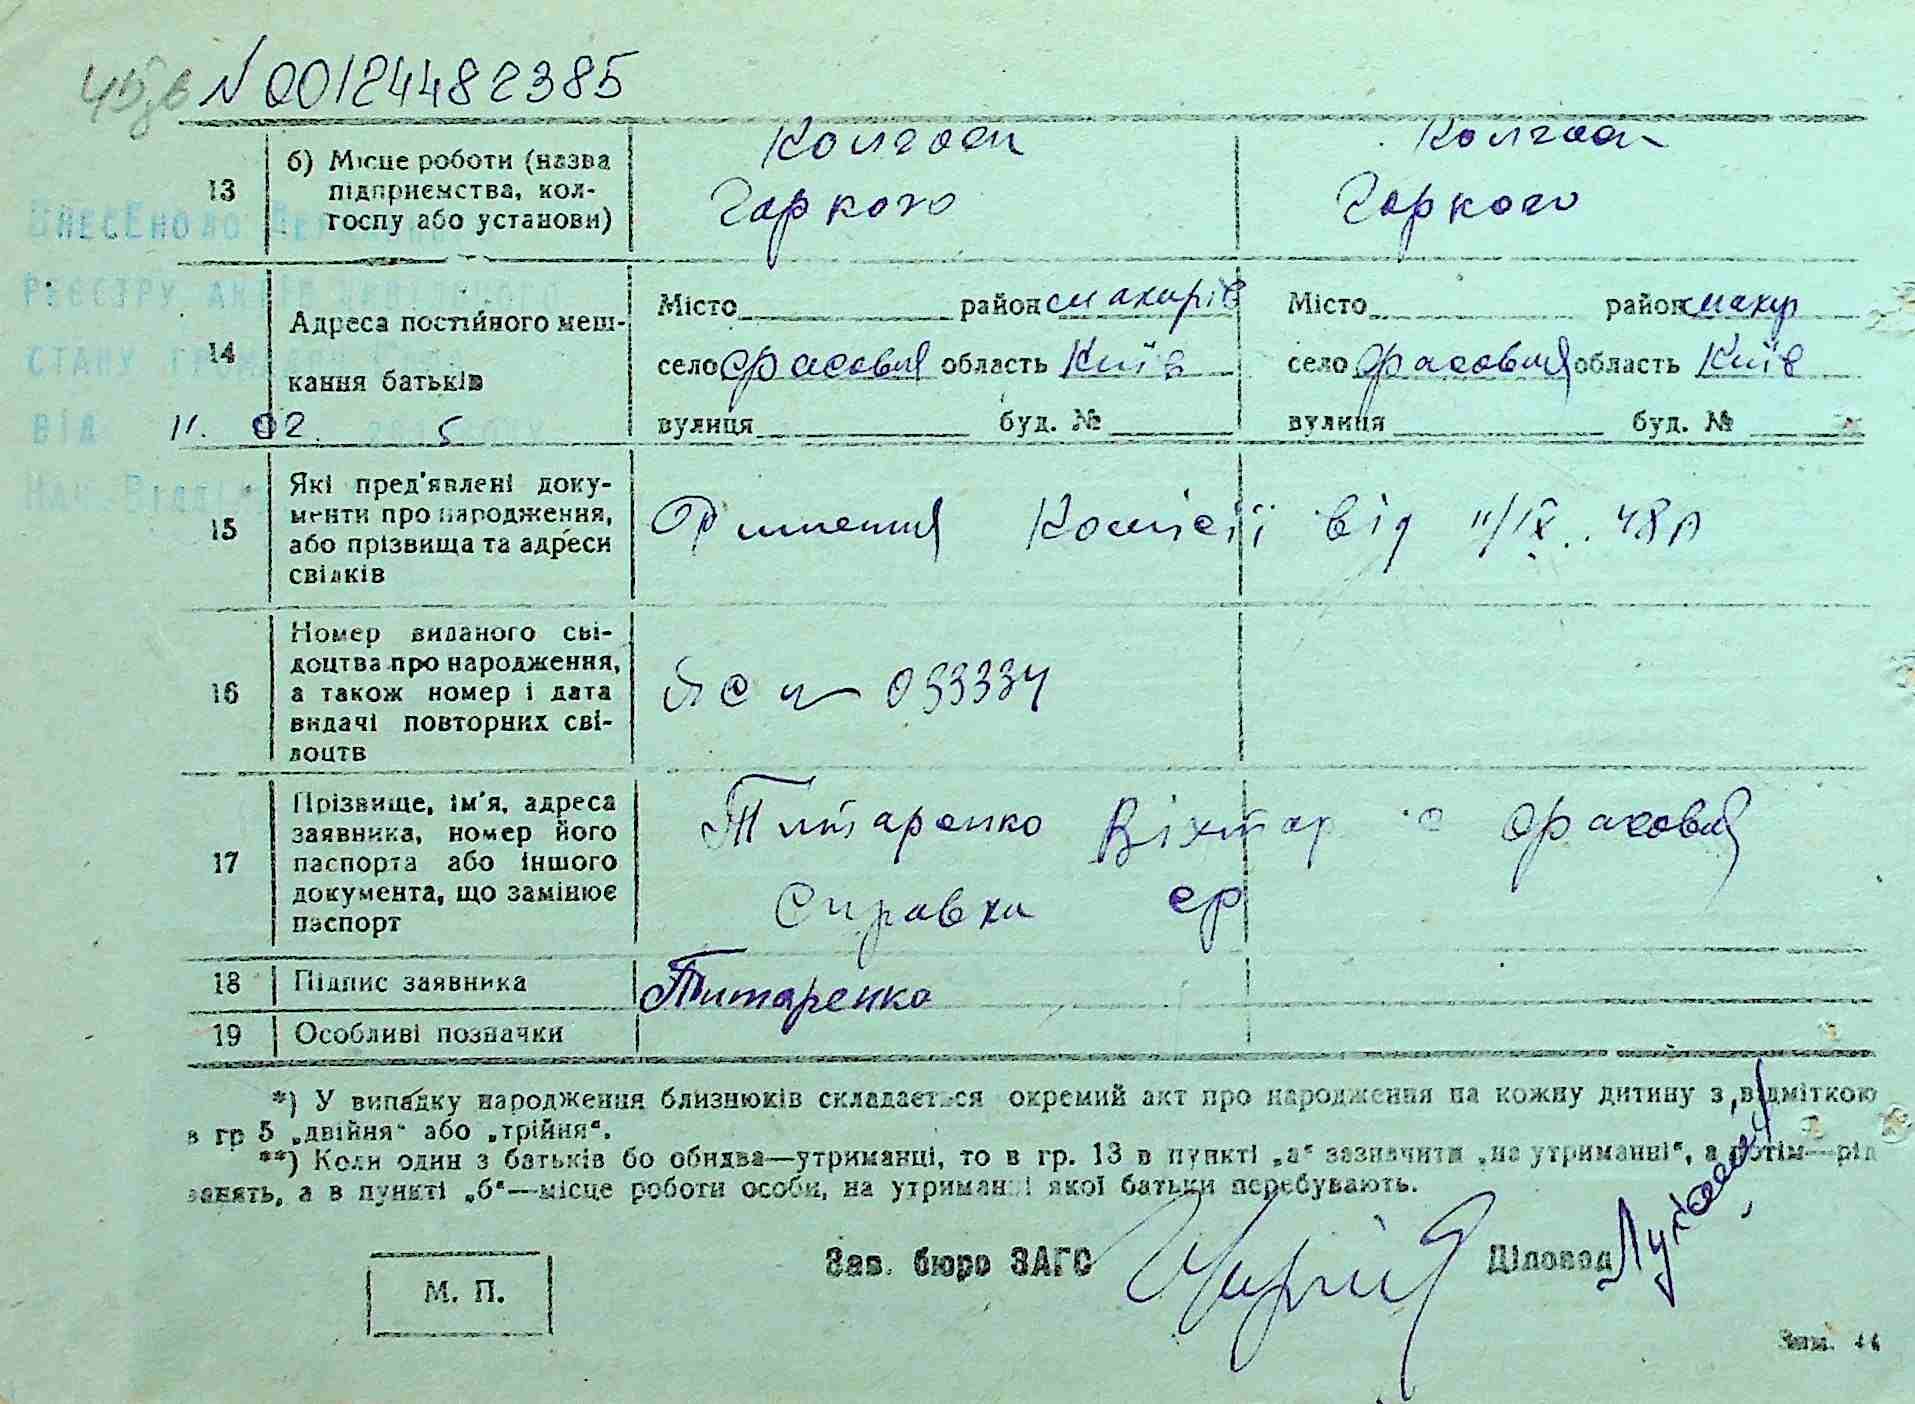 N 00124482385
13
б) Місце роботи (назва
підприємства, кол-
госпу або установи)
Колгосп
Горкого
Колгосп
Горкого
Внесено до
реєстру актів цивільного
стану громадян
від 11. 02. 5
14
Адреса постійного меш-
кання батьків
Місто район макарів
село область Київ
вулиця буд. №
Місто район макар
село область Київ
вулиця буд. №
15
Які пред'явлені доку-
менти про народження,
або прізвища та адреси
свідків
Комісії від 11/IX. 48
16
Номер виданого сві-
доцтва про народження,
а також номер і дата
видачі повторних сві-
доцтв
ЯС № 033334
17
Прізвище, ім'я, адреса
заявника, номер його
паспорта або іншого
документа, що замінює
паспорт
Титаренко Віктор с
Справка ср
18 Підпис заявника
Титаренко
19 Особливі позначки
*) У випадку народження близнюків складається окремий акт про народження на кожну дитину з відміткою
в гр 5 „двійня“ або „трійня“.
**) Коли один з батьків бо обидва—утриманці, то в гр. 13 в пункті „а“ зазначити „на утриманні“, а потім—рід
занять, а в пункті „б“—місце роботи особи, на утриманні якої батьки перебувають.
М. П.
Зав. бюро ЗАГС
Діловод
Зам. 44